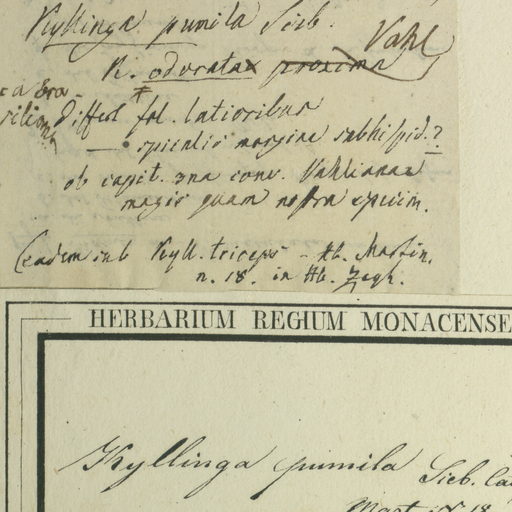 Kyllinga pumila Sieb.
Vahl
K. odorata proxima
differt fol. latioribus
spiculis margine subhispid.?
ob capit. 3na conv. Vahlianae
magis quam nostra specim.
(eadem sub Kyll. triceps - Hb. Martin.
n. 18. in Hb. Zegh.
HERBARIUM REGIUM MONACENSE
Kyllinga pumila Sieb.
Mart. N. 18